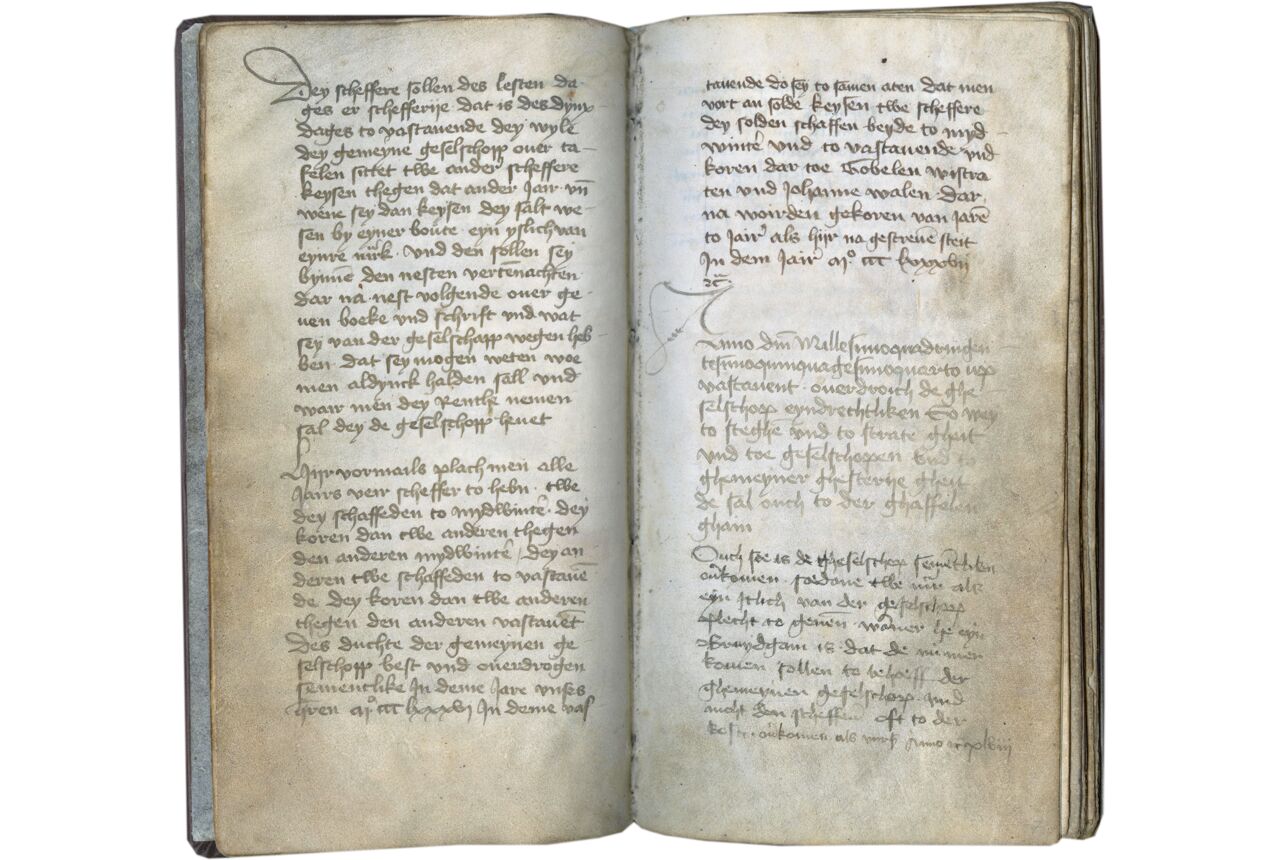 Dey scheffere sollen des lesten da-
ges er schefferije dat is des dynx
dages to vastauende dey wyle
dey gemeyne geselschopp ouer ta-
felen sittet twe ander scheffere
keysen thegen dat ander Jair vñ
wene sey dan keysen dey salt we-
sen by eyner boute eyn yslich van
eynre mrk. Vnd den sollen sey
bynnē den nesten vertēnachten
dar na nest volgende ouer ge-
uen boeke vnd schrift vnd wat
sey van der geselschapp wegen heb-
ben dat sey mogen weten woe
men aldynck halden sall vnd
wair men dey Renthe nemen
sal dey de geselschopp heuet
Hijr vormails plach men alle
Jairs veir scheffer to hebn. twe
dey schaffeden to mydwintē. dey
koren dan twe anderen thegen
den anderen mydwintē / dey an-
deren twe schaffeden to vastauē-
de dey koren dan twe anderen
thegen den anderen vastauēt
Des duchte der gemeynen ge-
selschopp best vnd ouerdrogen
sementlike In deme Jare vnses
heren mº ccc lxxxvj In deme vas-
tauende do sey to samen aten dat men
vort an solde keysen twe scheffere
dey solden schaffen beyde to myd-
wintē vnd to vastauende vnd
koren dar toe Gobelen wistra-
ten vnd Johanne walen. Dar
na worden gekoren van Jarē
to Jair als hijr na gescreuē steit
In dem Jair mº ccc lxxxvij
Anno dm̄ Millesimoquadringen-
tesimoquinquagesimoquarto vp
vastauent. ouerdroich de ghe-
selschopp eyndrechtliken So wey
to steghē vnd to strate gheit
vnd toe geselschoppen vnd to
ghemeyner ghesterije gheit
de sal ouch to der ghaffelen
gham
Ouch soe is de gheselschop semētliken
ouerkomen. soedane twe mr als
eyn Itlich van der geselschopp
plecht to geuen. wāner he eyn
Bruydgam is. dat de
komen sollen to behoeff der
ghemeynen geselschopp. vnd
nicht den scheffern oft to der
kost. ouerkomen als vurß Anno xlviij